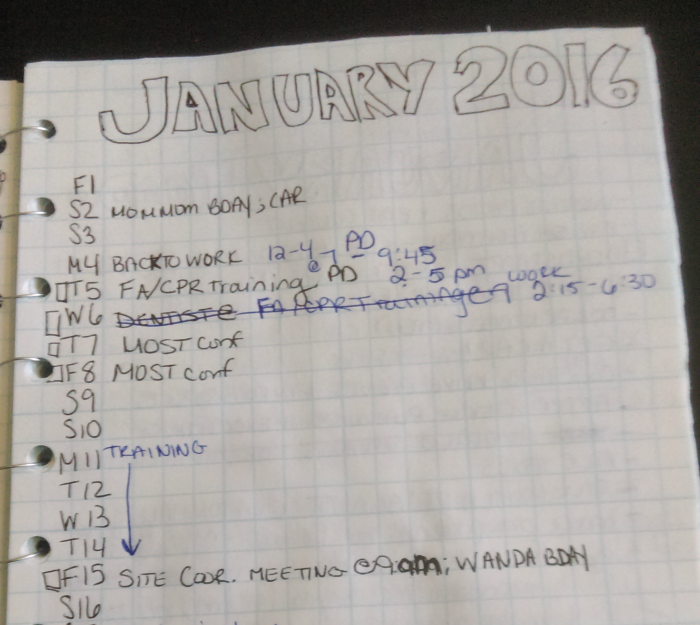 JANUARY 2016
F1
S2 MOMMOM BDAY; CAR
S3
M4 BACK TO WORK 12-4 - PD 9:45
T5 FA/CPR Training @ PD 2-5 pm work
W6 DENTIST @ FA/CPR Training @ 9 2:15-6:30
T7 MOST Conf
F8 MOST Conf
S9
S10
M11 TRAINING
T12
W13
T14
F15 SITE COOR. MEETING @ 9am; WANDA BDAY
S16